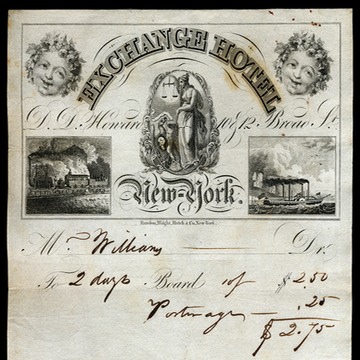 EXCHANGE HOTEL
D. D. Howard 10 & 12 Broad St.
New-York.
Rawdon, Wright, Hatch & Co. New-York.
Mr. Williams Dr.
To 2 days Board $2.50
Porterage .25
$2.75